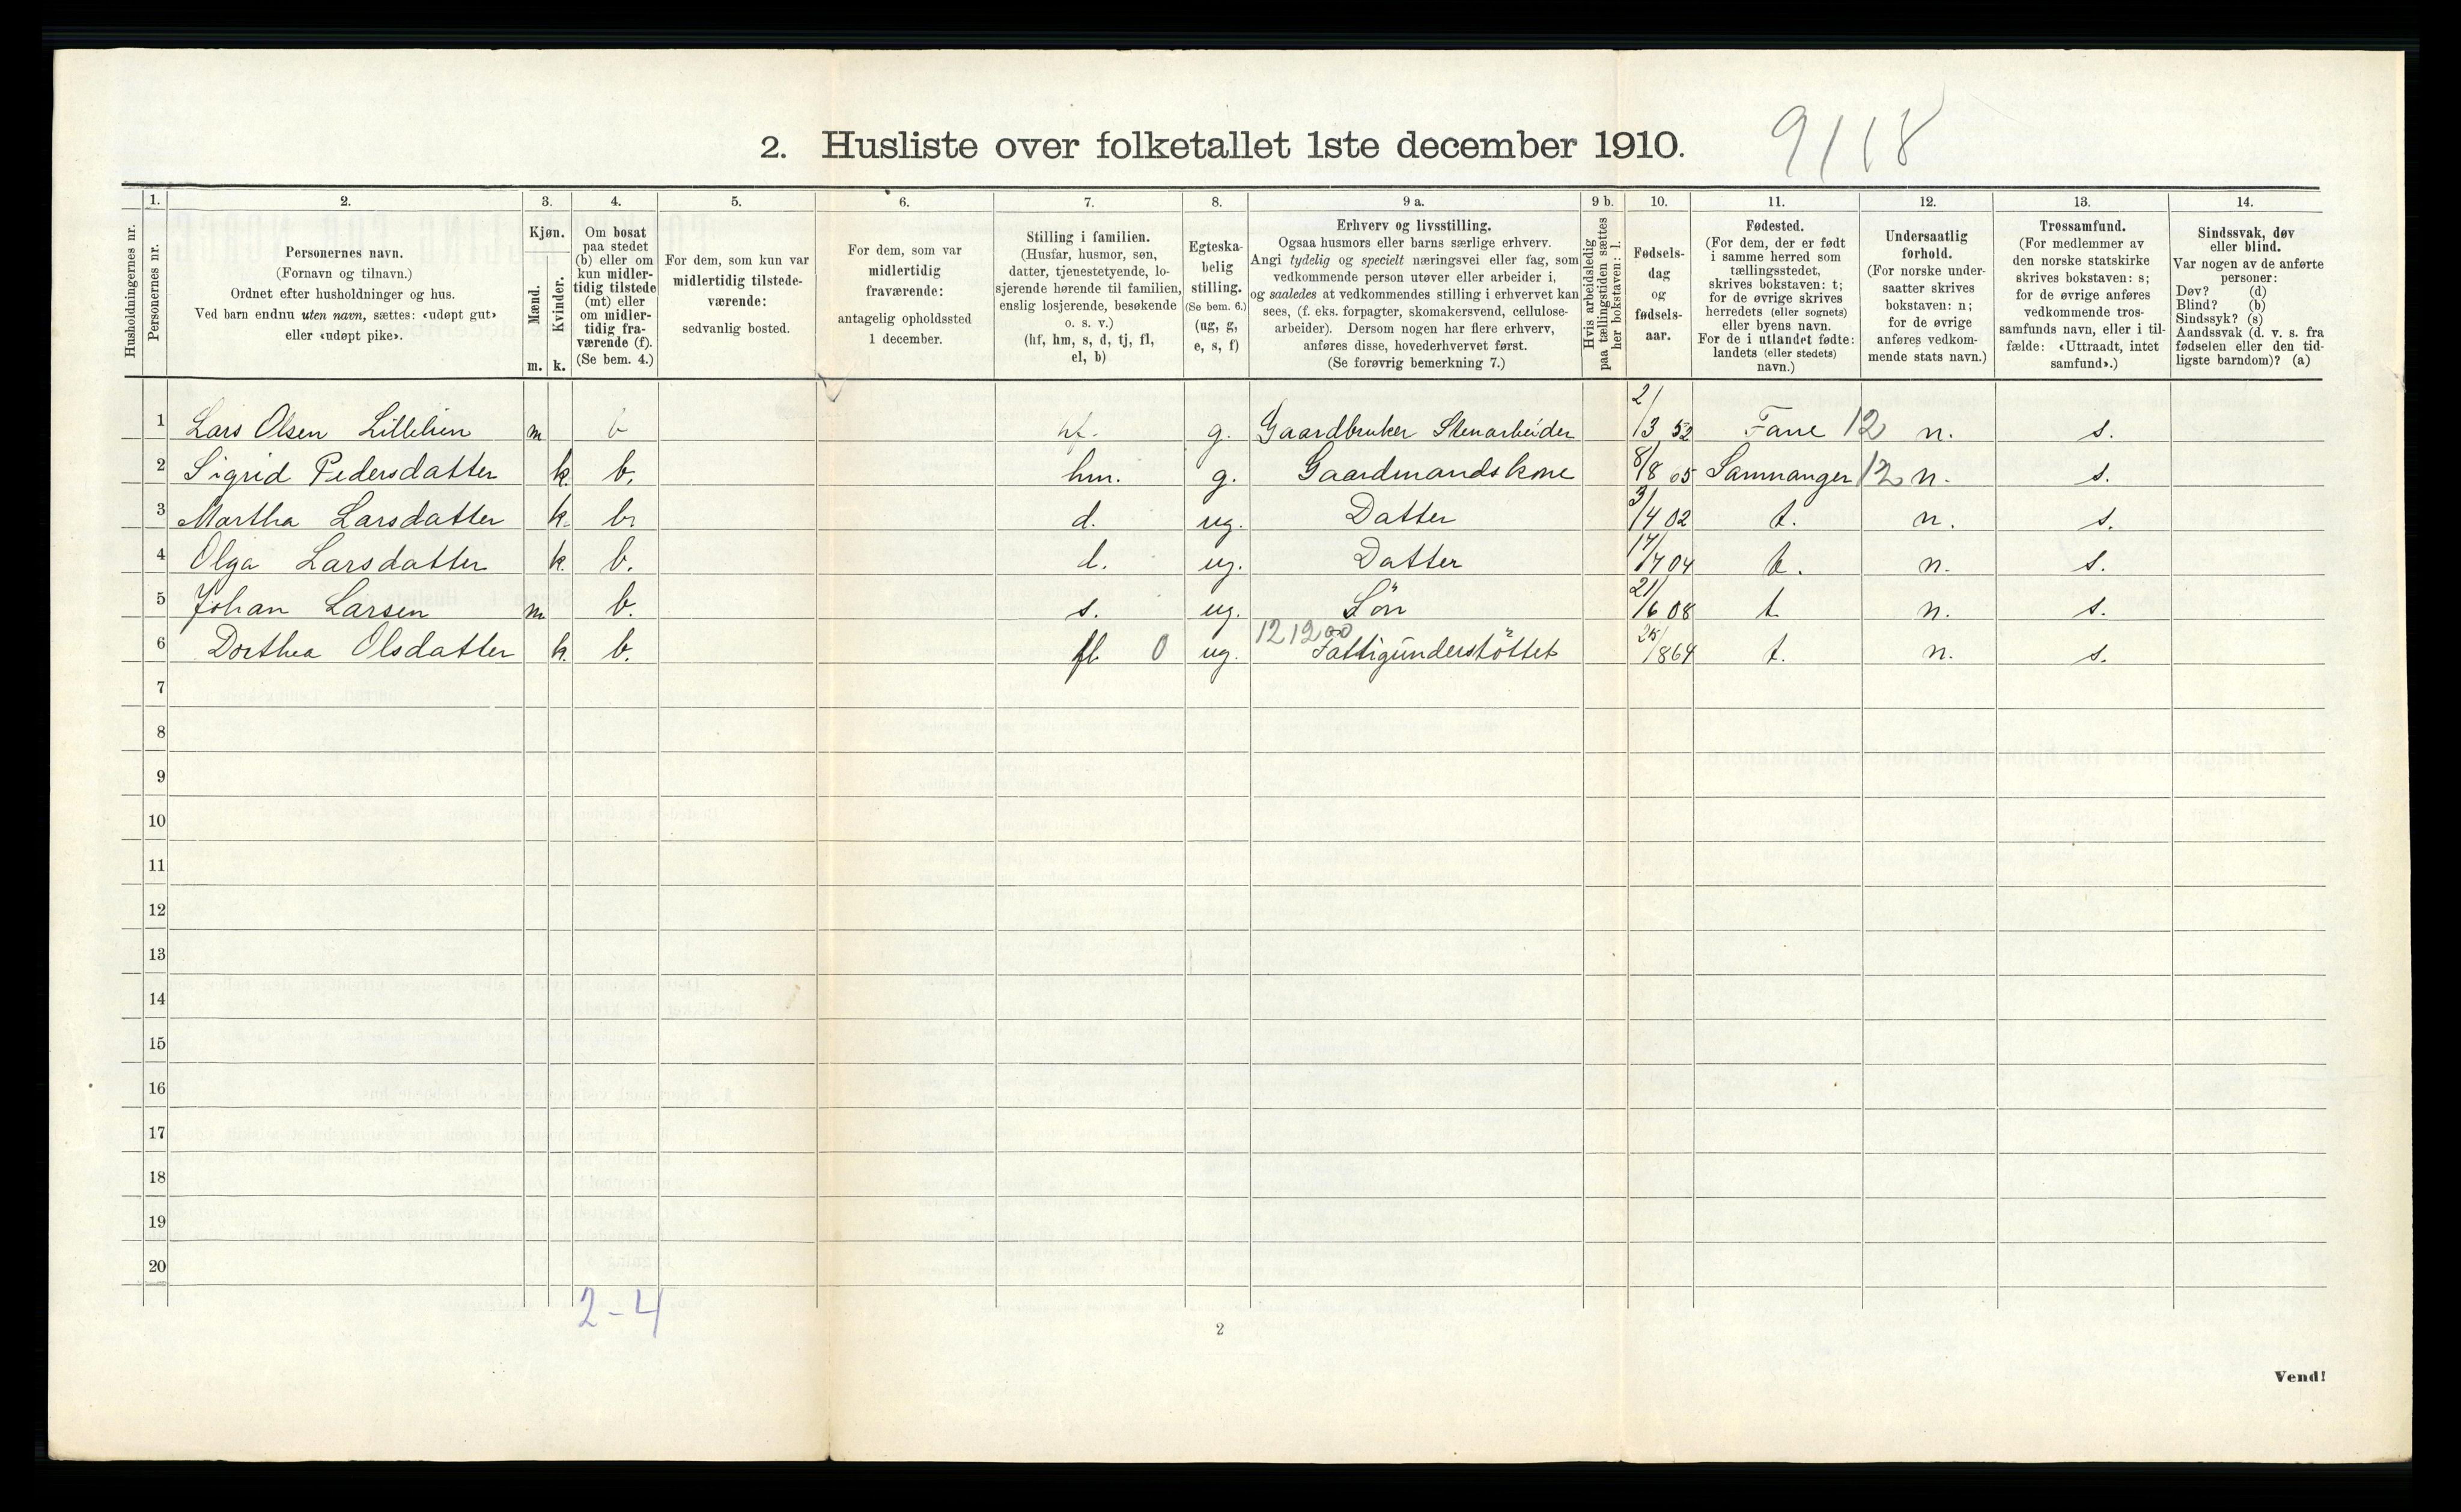 2. Husliste over folketallet 1ste december 1910.
9118
1. 2. 3. 4. 5. 6. 7. 8. 9 a. 9 b. 10. 11. 12. 13. 14.
Husholdningernes nr.
Personernes nr.
Personernes navn.
(Fornavn og tilnavn.)
Ordnet efter husholdninger og hus.
Ved barn endnu uten navn, sættes: «udøpt gut»
eller «udøpt pike».
Kjøn.
Mænd.
Kvinder.
m. k.
Om bosat
paa stedet
(b) eller om
kun midler-
tidig tilstede
(mt) eller
om midler-
tidig fra-
værende (f).
(Se bem. 4.)
For dem, som kun var
midlertidig tilstede-
værende:
sedvanlig bosted.
For dem, som var
midlertidig
fraværende:
antagelig opholdssted
1 december.
Stilling i familien.
(Husfar, husmor, søn,
datter, tjenestetyende, lo-
sjerende hørende til familien,
enslig losjerende, besøkende
o. s. v.)
(hf, hm, s, d, tj, fl,
el, b)
Egteska-
belig
stilling.
(Se bem. 6.)
(ug, g,
e, s, f)
Erhverv og livsstilling.
Ogsaa husmors eller barns særlige erhverv.
Angi tydelig og specielt næringsvei eller fag, som
vedkommende person utøver eller arbeider i,
og saaledes at vedkommendes stilling i erhvervet kan
sees, (f. eks. forpagter, skomakersvend, cellulose-
arbeider). Dersom nogen har flere erhverv,
anføres disse, hovederhvervet først.
(Se forøvrig bemerkning 7.)
Hvis arbeidsledig
paa tællingstiden sættes
her bokstaven: l.
Fødsels-
dag
og
fødsels-
aar.
Fødested.
(For dem, der er født
i samme herred som
tællingsstedet,
skrives bokstaven: t;
for de øvrige skrives
herredets (eller sognets)
eller byens navn.
For de i utlandet fødte:
landets (eller stedets)
navn.)
Undersaatlig
forhold.
(For norske under-
saatter skrives
bokstaven: n;
for de øvrige
anføres vedkom-
mende stats navn.)
Trossamfund.
(For medlemmer av
den norske statskirke
skrives bokstaven: s;
for de øvrige anføres
vedkommende tros-
samfunds navn, eller i til-
fælde: «Uttraadt, intet
samfund».)
Sindssvak, døv
eller blind.
Var nogen av de anførte
personer:
Døv? (d)
Blind? (b)
Sindssyk? (s)
Aandssvak (d. v. s. fra
fødselen eller den tid-
ligste barndom)? (a)
1 Lars Olsen Lillelien m b hf. g. Gaardbruker Stenarbeider 2/3 52 Fane 12 n. s.
2 Sigrid Pedersdatter k. b. hm. g. Gaardmandskone 8/8 65 Samnanger 12 n. s.
3 Martha Larsdatter k. b. d. ug. Datter 3/4 02 t. n. s.
4 Olga Larsdatter k. b. d. ug. Datter 17/7 04 t. n. s.
5 Johan Larsen m b. s. ug. Sön 21/6 08 t. n. s.
121200
6 Dorthea Olsdatter k. b. fl 0 ug. Fattigünderstöttet 25/8 64 t. n. s.
7
8
9
10
11
12
13
14
15
16
17
18
19
20
2-4
2
Vend!